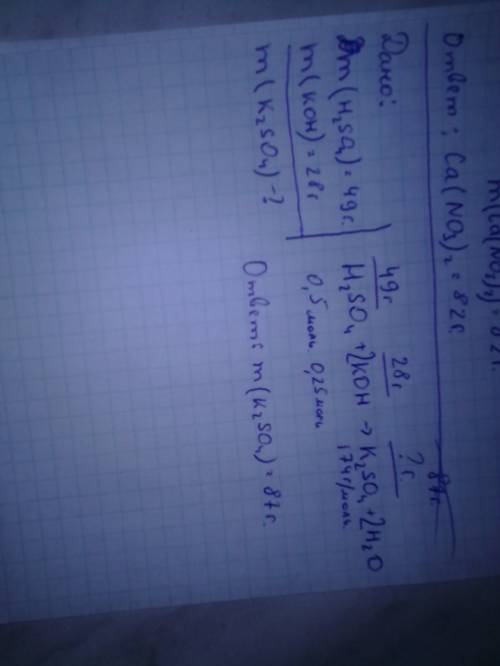 m(Ca(NO₃)₂) = 82г.
Ответ: Ca(NO₃)₂ = 82г.
Дано:
m(H₂SO₄) = 49г.
m(KOH) = 28г
m(K₂SO₄) - ?
87г.
49г 28г ? г.
H₂SO₄ + 2KOH → K₂SO₄ + 2H₂O
0,5 моль 0,25 моль 174г/моль
Ответ: m(K₂SO₄) = 87г.